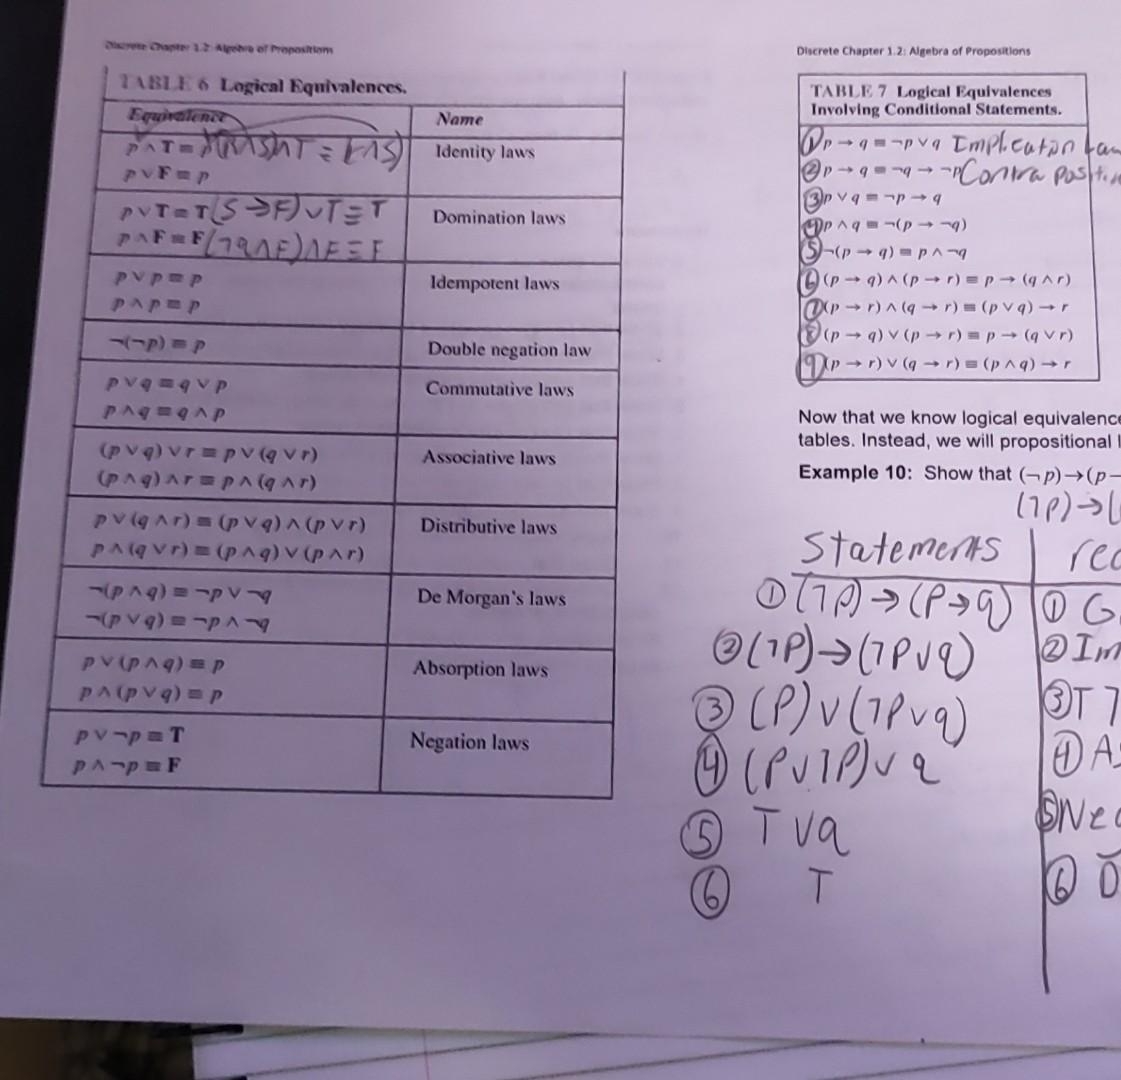 Discrete Chapter 1.2: Algebra of Propositions
TABLE 6 Logical Equivalences.
Equivalence Name
p ∧ T ≡ p (r∧s)∧T ≡ (r∧s) Identity laws
p ∨ F ≡ p
p ∨ T ≡ T (S→F)∨T ≡ T Domination laws
p ∧ F ≡ F (¬q∧F)∧F ≡ F
p ∨ p ≡ p Idempotent laws
p ∧ p ≡ p
¬(¬p) ≡ p Double negation law
p ∨ q ≡ q ∨ p Commutative laws
p ∧ q ≡ q ∧ p
(p ∨ q) ∨ r ≡ p ∨ (q ∨ r) Associative laws
(p ∧ q) ∧ r ≡ p ∧ (q ∧ r)
p ∨ (q ∧ r) ≡ (p ∨ q) ∧ (p ∨ r) Distributive laws
p ∧ (q ∨ r) ≡ (p ∧ q) ∨ (p ∧ r)
¬(p ∧ q) ≡ ¬p ∨ ¬q De Morgan's laws
¬(p ∨ q) ≡ ¬p ∧ ¬q
p ∨ (p ∧ q) ≡ p Absorption laws
p ∧ (p ∨ q) ≡ p
p ∨ ¬p ≡ T Negation laws
p ∧ ¬p ≡ F
Discrete Chapter 1.2: Algebra of Propositions
TABLE 7 Logical Equivalences
Involving Conditional Statements.
① p → q ≡ ¬p ∨ q Implication Law
② p → q ≡ ¬q → ¬p Contra positi
③ p ∨ q ≡ ¬p → q
④ p ∧ q ≡ ¬(p → ¬q)
⑤ ¬(p → q) ≡ p ∧ ¬q
⑥ (p → q) ∧ (p → r) ≡ p → (q ∧ r)
⑦ (p → r) ∧ (q → r) ≡ (p ∨ q) → r
⑧ (p → q) ∨ (p → r) ≡ p → (q ∨ r)
⑨ (p → r) ∨ (q → r) ≡ (p ∧ q) → r
Now that we know logical equivalence
tables. Instead, we will propositional l
Example 10: Show that (¬p)→(p→
(¬p)→(
Statements rea
① (¬p)→(p→q) ① G
② (¬p)→(¬p∨q) ② Im
③ (p)∨(¬p∨q) ③ T7
④ (p∨¬p)∨q ④ As
⑤ T∨q ⑤ Neg
⑥ T ⑥ D